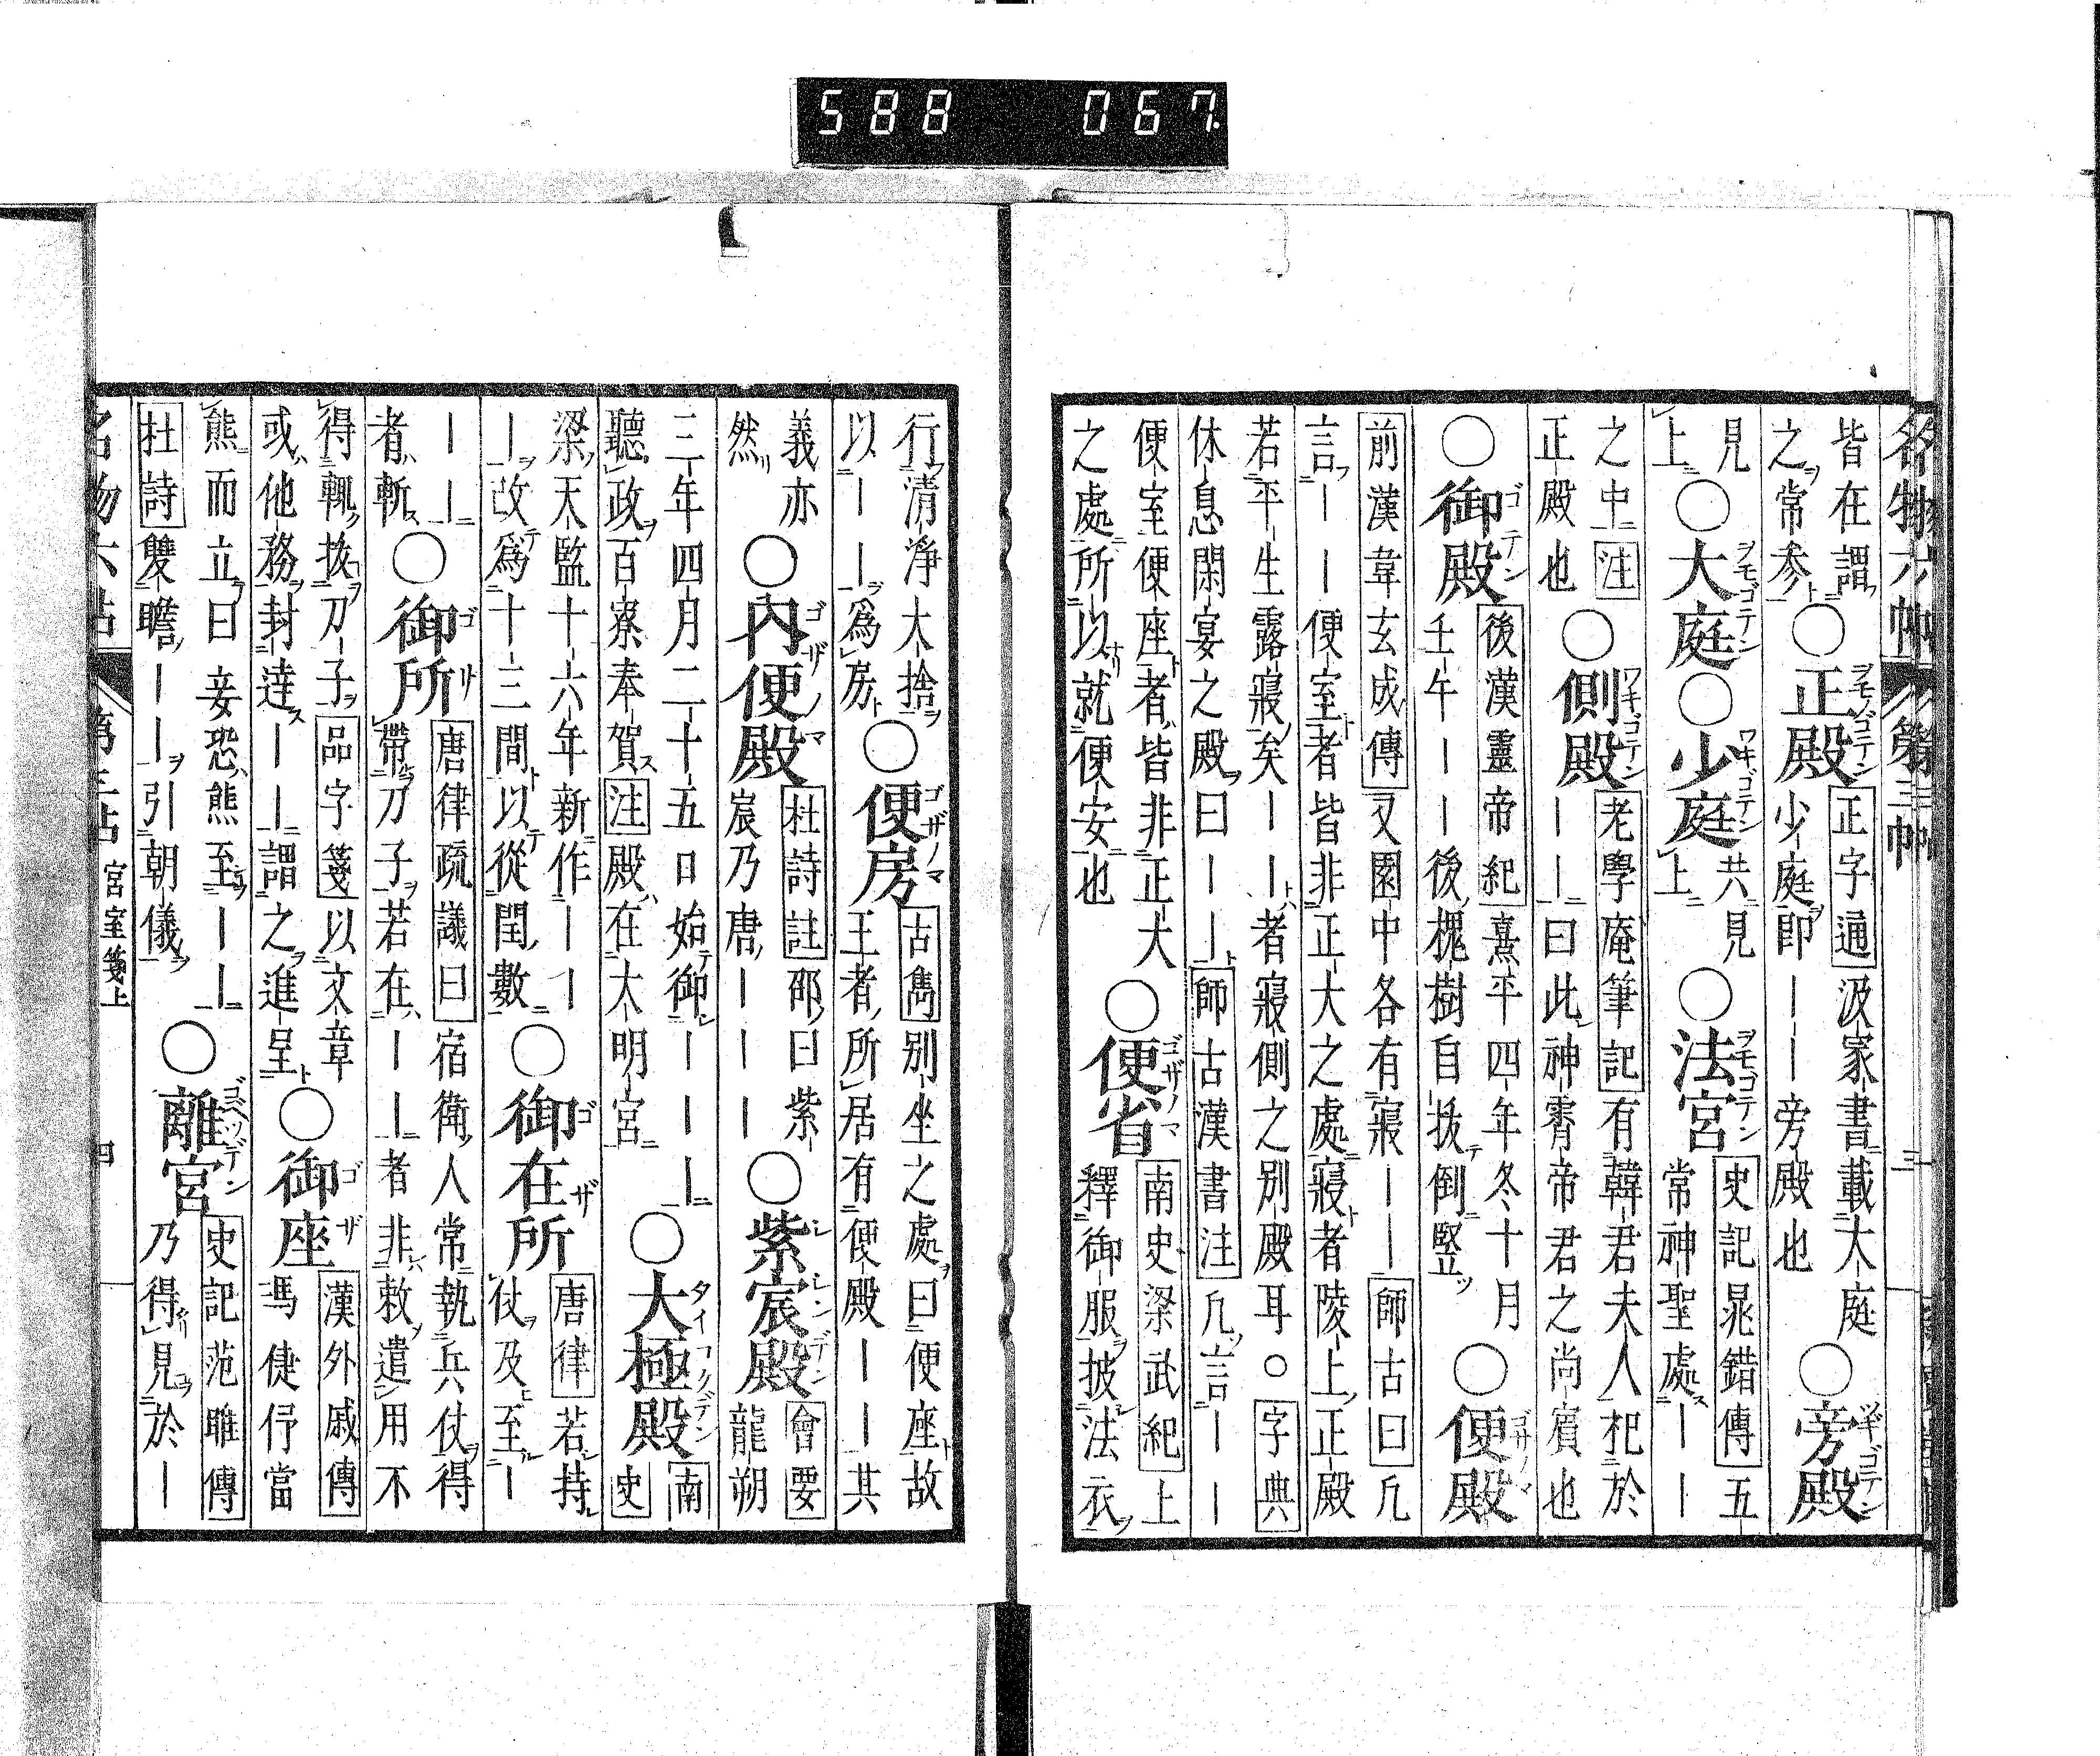 588 067
名物六帖 第三帖
皆在謂
之常参
○正殿
正字通汲冢書載大庭
少庭即――旁殿也
○旁殿
見
上
○大庭○少庭
共見
上
○法宮
史記晁錯傳五
常神聖處――
之中注
正殿也
○側殿
老學庵筆記有韓君夫人祀於
――曰此神霄帝君之尚賓也
○御殿
後漢靈帝紀熹平四年冬十月
壬午――後槐樹自拔倒竪
○便殿
前漢韋玄成傳又園中各有寢――師古曰凡
言――便室者皆非正大之處寢者陵上正殿
若平生露寢矣――者寢側之別殿耳。字典
休息閑宴之殿曰――師古漢書注凡言――
便室便座者皆非正大
之處所以就便安也
○便省
南史梁武紀上
釋御服披法衣
行清淨大捨
以――為房
○便房
古雋別坐之處曰便座故
王者所居有便殿――其
義亦
然
○內便殿
杜詩註邵曰紫
宸乃唐――
○紫宸殿
會要龍朔
三年四月二十五日始御――
聽政百寮奉賀注殿在大明宮
○大極殿
南
史
梁天監十六年新作――
――改為十三間以從閏數
○御在所
唐律若持
仗及至―
――
者斬
○御所
唐律疏議曰宿衛人常執兵仗得
帶刀子若在――者非敕遣用不
得輒拔刀子品字箋以文章
或他務封達――謂之進呈
○御座
漢外戚傳
馮倢伃當
熊而立曰妾恐熊至――
杜詩雙瞻――引朝儀
○離宮
史記范雎傳
乃得見於―
名物六帖 第三帖 宮室箋上 四